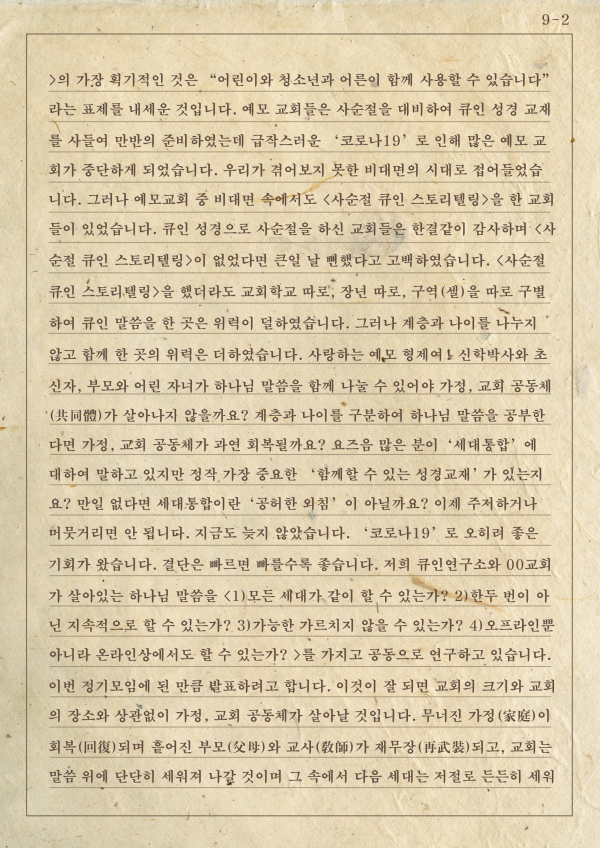 9-2
>의 가장 획기적인 것은 “어린이와 청소년과 어른이 함께 사용할 수 있습니다”
라는 표제를 내세운 것입니다. 예모 교회들은 사순절을 대비하여 큐인 성경 교재
를 사들여 만반의 준비하였는데 급작스러운 ‘코로나19’로 인해 많은 예모 교
회가 중단하게 되었습니다. 우리가 겪어보지 못한 비대면의 시대로 접어들었습
니다. 그러나 예모교회 중 비대면 속에서도 <사순절 큐인 스토리텔링>을 한 교회
들이 있었습니다. 큐인 성경으로 사순절을 하신 교회들은 한결같이 감사하며 <사
순절 큐인 스토리텔링>이 없었다면 큰일 날 뻔했다고 고백하였습니다. <사순절
큐인 스토리텔링>을 했더라도 교회학교 따로, 장년 따로, 구역(셀)을 따로 구별
하여 큐인 말씀을 한 곳은 위력이 덜하였습니다. 그러나 계층과 나이를 나누지
않고 함께 한 곳의 위력은 더하였습니다. 사랑하는 예모 형제여! 신학박사와 초
신자, 부모와 어린 자녀가 하나님 말씀을 함께 나눌 수 있어야 가정, 교회 공동체
(共同體)가 살아나지 않을까요? 계층과 나이를 구분하여 하나님 말씀을 공부한
다면 가정, 교회 공동체가 과연 회복될까요? 요즈음 많은 분이 ‘세대통합’에
대하여 말하고 있지만 정작 가장 중요한 ‘함께할 수 있는 성경교재’가 있는지
요? 만일 없다면 세대통합이란 ‘공허한 외침’이 아닐까요? 이제 주저하거나
머뭇거리면 안 됩니다. 지금도 늦지 않았습니다. ‘코로나19’로 오히려 좋은
기회가 왔습니다. 결단은 빠르면 빠를수록 좋습니다. 저희 큐인연구소와 00교회
가 살아있는 하나님 말씀을 <1)모든 세대가 같이 할 수 있는가? 2)한두 번이 아
닌 지속적으로 할 수 있는가? 3)가능한 가르치지 않을 수 있는가? 4)오프라인뿐
아니라 온라인상에서도 할 수 있는가? >를 가지고 공동으로 연구하고 있습니다.
이번 정기모임에 된 만큼 발표하려고 합니다. 이것이 잘 되면 교회의 크기와 교회
의 장소와 상관없이 가정, 교회 공동체가 살아날 것입니다. 무너진 가정(家庭)이
회복(回復)되며 흩어진 부모(父母)와 교사(敎師)가 재무장(再武裝)되고, 교회는
말씀 위에 단단히 세워져 나갈 것이며 그 속에서 다음 세대는 저절로 든든히 세워